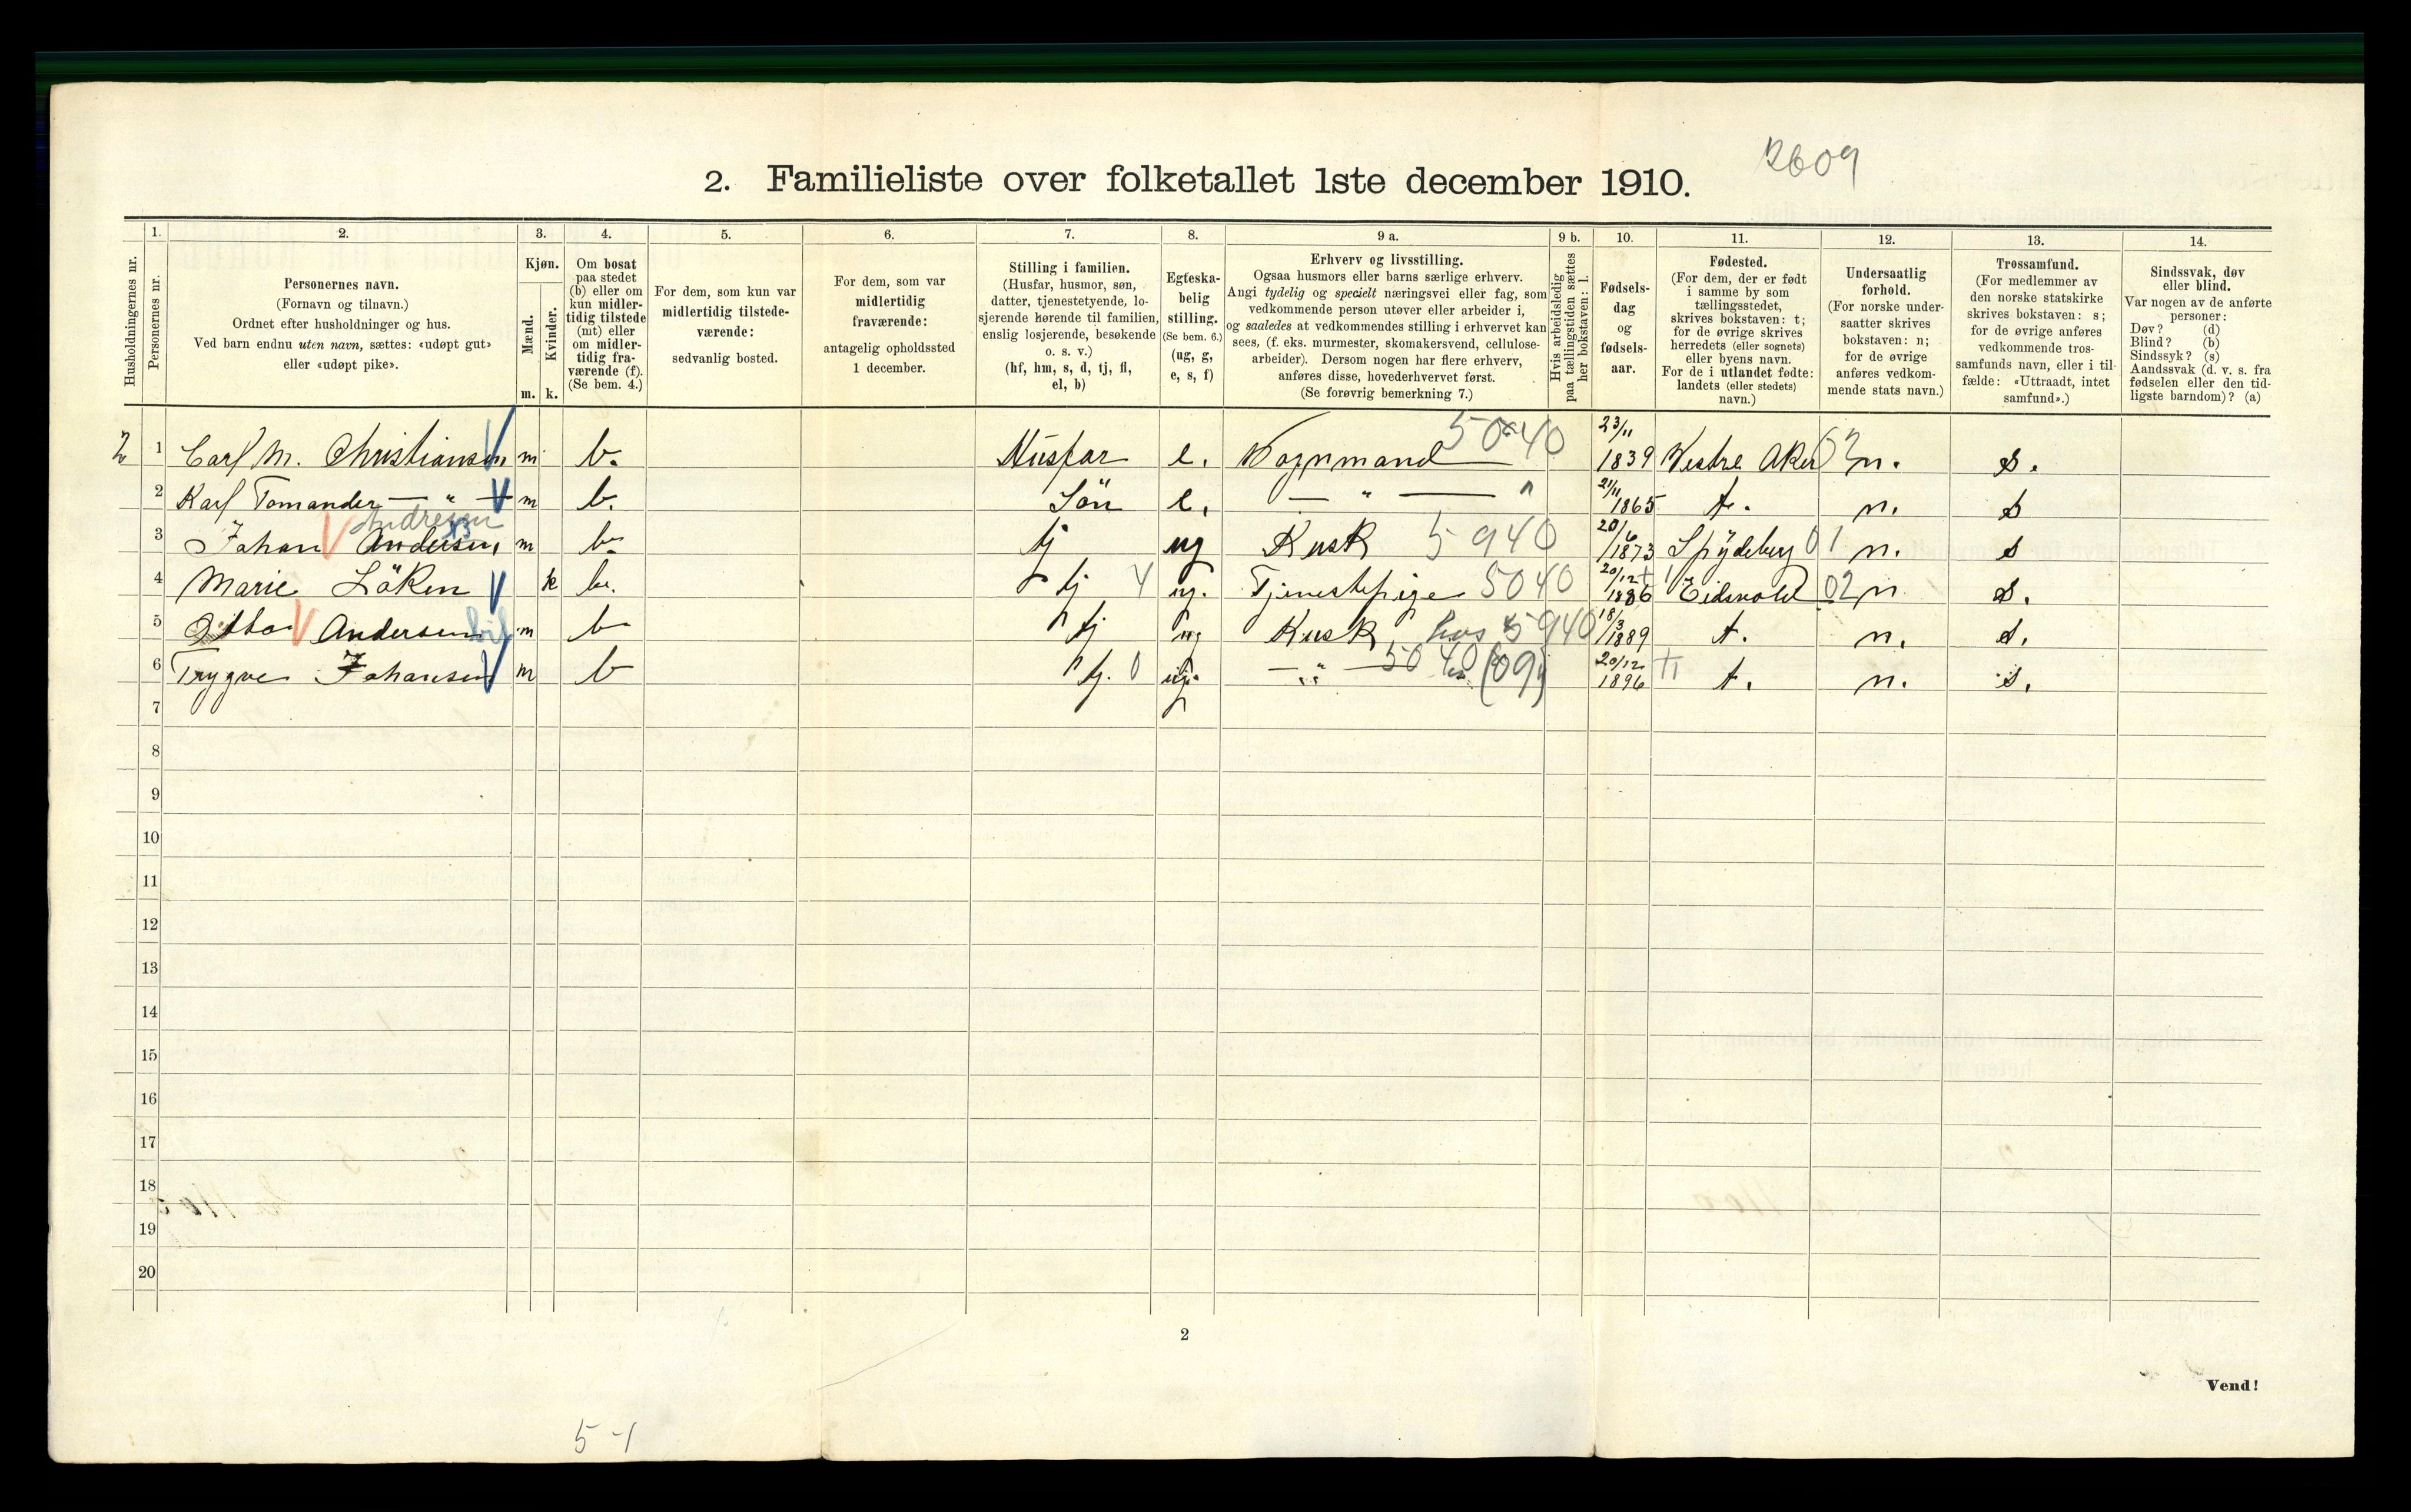 2609
2. Familieliste over folketallet 1ste december 1910.
1. 2. 3. 4. 5. 6. 7. 8. 9 a. 9 b. 10. 11. 12. 13. 14.
Husholdningernes nr.
Personernes nr.
Personernes navn.
(Fornavn og tilnavn.)
Ordnet efter husholdninger og hus.
Ved barn endnu uten navn, sættes: «udøpt gut»
eller «udøpt pike».
Kjøn.
Mænd.
Kvinder.
m. k.
Om bosat
paa stedet
(b) eller om
kun midler-
tidig tilstede
(mt) eller
om midler-
tidig fra-
værende (f).
(Se bem. 4.)
For dem, som kun var
midlertidig tilstede-
værende:
sedvanlig bosted.
For dem, som var
midlertidig
fraværende:
antagelig opholdssted
1 december.
Stilling i familien.
(Husfar, husmor, søn,
datter, tjenestetyende, lo-
sjerende hørende til familien,
enslig losjerende, besøkende
o. s. v.)
(hf, hm, s, d, tj, fl,
el, b)
Egteska-
belig
stilling.
(Se bem. 6.)
(ug, g,
e, s, f)
Erhverv og livsstilling.
Ogsaa husmors eller barns særlige erhverv.
Angi tydelig og specielt næringsvei eller fag, som
vedkommende person utøver eller arbeider i,
og saaledes at vedkommendes stilling i erhvervet kan
sees, (f. eks. murmester, skomakersvend, cellulose-
arbeider). Dersom nogen har flere erhverv,
anføres disse, hovederhvervet først.
(Se forøvrig bemerkning 7.)
Hvis arbeidsledig
paa tællingstiden sættes
her bokstaven: l.
Fødsels-
dag
og
fødsels-
aar.
Fødested.
(For dem, der er født
i samme by som
tællingsstedet,
skrives bokstaven: t;
for de øvrige skrives
herredets (eller sognets)
eller byens navn.
For de i utlandet fødte:
landets (eller stedets)
navn.)
Undersaatlig
forhold.
(For norske under-
saatter skrives
bokstaven: n;
for de øvrige
anføres vedkom-
mende stats navn.)
Trossamfund.
(For medlemmer av
den norske statskirke
skrives bokstaven: s;
for de øvrige anføres
vedkommende tros-
samfunds navn, eller i til-
fælde: «Uttraadt, intet
samfund».)
Sindssvak, døv
eller blind.
Var nogen av de anførte
personer:
Døv? (d)
Blind? (b)
Sindssyk? (s)
Aandssvak (d. v. s. fra
fødselen eller den tid-
ligste barndom)? (a)
2 1 Carl M. Christiansen m b. Husfar e. Vognmand 5040 23/11 1839 Vestre Aker 02 n. s.
2 Karl Tomander — " — m b. Sön e. — " — 21/11 1865 t. n. s
Andresen
3 Johan Andersen m b. tj ug Kusk 5940 20/6 1873 Spydeberg 01 n. s
4 Marie Löken k b. tj 4 ug. Tjenestepige 5040 20/12 1886 Eidsvold 02 n s.
5 Otto Andersen m b tj ug Kusk 5940 18/3 1889 t. n. s.
6 Trygve Johansen m b tj. 0 ug. — " — 5040 (09) 20/12 1896 t. n. s.
7
8
9
10
11
12
13
14
15
16
17
18
19
20
2
Vend!
5-1